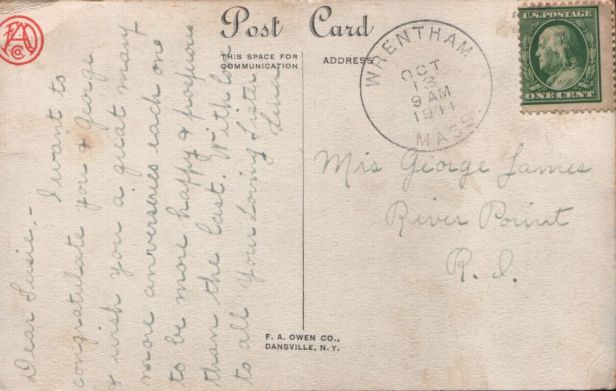 Post Card
THIS SPACE FOR
COMMUNICATION
ADDRESS
U.S. POSTAGE
ONE CENT
WRENTHAM
OCT
13
9 AM
1911
MASS.
Dear Susie.-
I want to
congratulate you & George
& wish you a great many
more anverseries each one
to be more happy & porpuris
than the last. With love
to all Your Loving Sister
Lina
Mrs George James
River Point
R. I.
F. A. OWEN CO.,
DANSVILLE, N. Y.